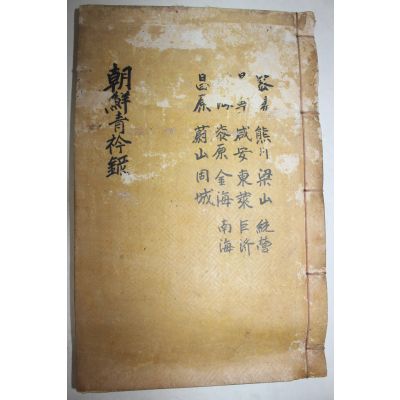 熊川 梁山 統營
咸安 東萊 巨济
金海 南海
昌原 蔚山 固城
朝鮮青衿錄